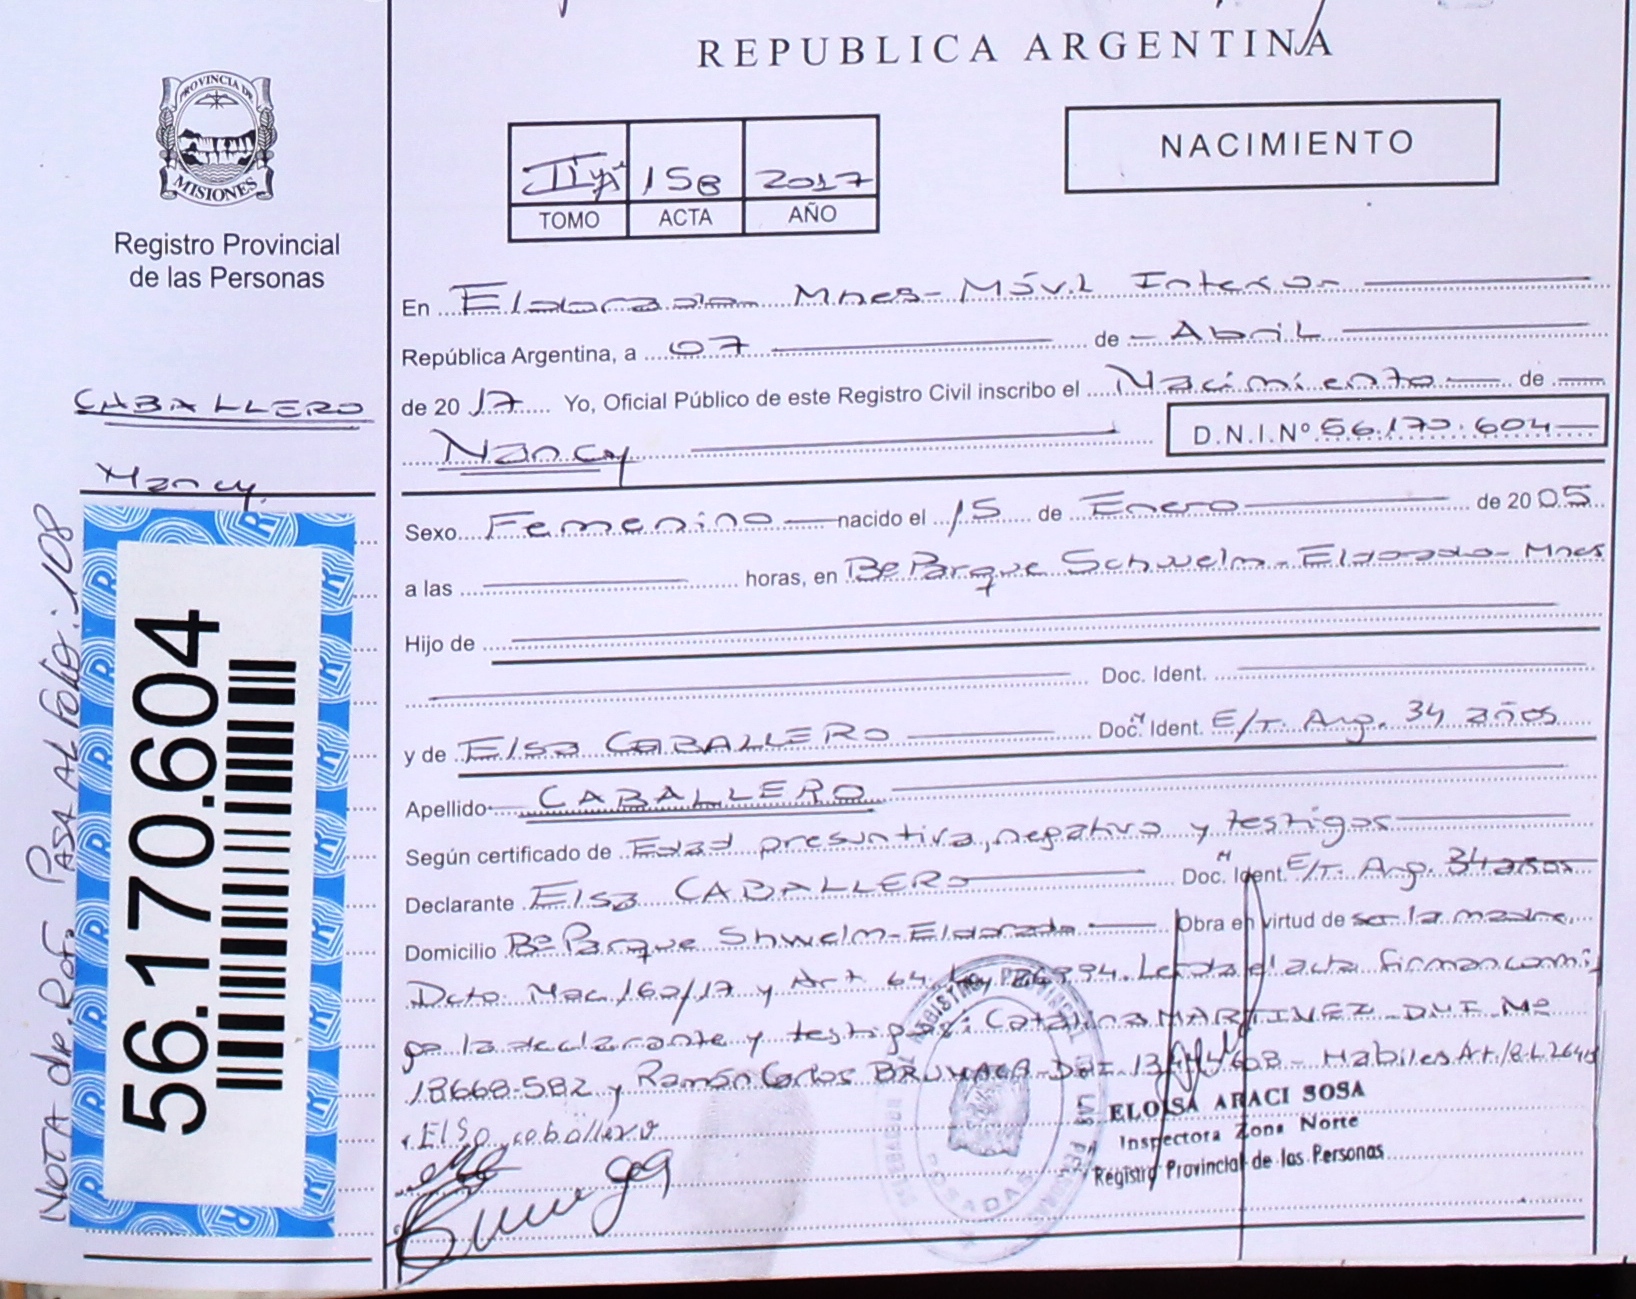 REPUBLICA ARGENTINA
PROVINCIA DE
MISIONES
Registro Provincial
de las Personas
NACIMIENTO
158 2017
TOMO ACTA AÑO
CABALLERO
Nancy
NOTA de Ref. PASA AL Folio: 108
56.170.604
En Eldorado Mnes - Móvil Interior
República Argentina, a 07 de Abril
de 20 17 Yo, Oficial Público de este Registro Civil inscribo el Nacimiento de
Nancy D.N.I.Nº 56.170.604
Sexo Femenino nacido el 15 de Enero de 20 05
a las horas, en Bº Parque Schwelm - Eldorado - Mnes
Hijo de
Doc. Ident.
y de Elsa CABALLERO Doc. Ident. E/T. Arg. 34 años
Apellido CABALLERO
Según certificado de Edad presuntiva, negativo y testigos
Declarante Elsa CABALLERO Doc. Ident. E/T. Arg. 34 años
Domicilio Bº Parque Shwelm - Eldorado Obra en virtud de ser la madre
Dcto. Nac. 160/17 y Art. 64 Ley 26994. Leida el acta firman conmi
go la declarante y testigos: Catalina MARTINEZ - DNI Nº
18668.582 y Ramón Carlos DNI 13 608 - Habiles Art.
Elsa caballero
ELOISA ARACI SOSA
Inspectora Zona Norte
Registro Provincial de las Personas
POSADAS